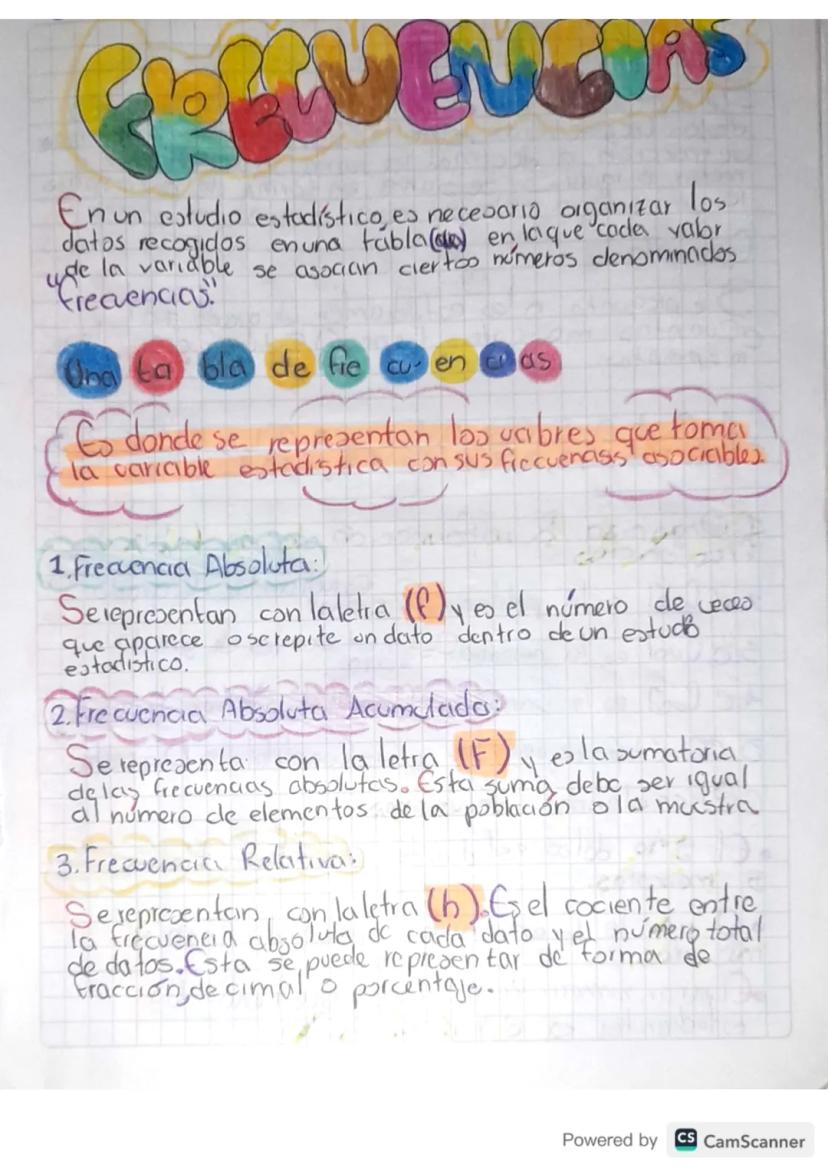 FRECUENCIAS
En un estudio estadístico, es necesario organizar los
datos recogidos en una tabla en la que cada valor
de la variable se asocian ciertos números denominados
"frecuencias".
Una ta bla de fre cu- en ci as
Es donde se representan los valores que toma
la variable estadística con sus frecuencias asociables.
1. Frecuencia Absoluta:
Se representan con la letra (f) y es el número de veces
que aparece o se repite un dato dentro de un estudio
estadístico.
2. Frecuencia Absoluta Acumulada:
Se representa con la letra (F) y es la sumatoria
de las frecuencias absolutas. Esta suma debe ser igual
al número de elementos de la población o la muestra
3. Frecuencia Relativa:
Se representan con la letra (h). Es el cociente entre
la frecuencia absoluta de cada dato y el número total
de datos. Esta se puede representar de forma de
fracción, decimal o porcentaje.
Powered by CS CamScanner